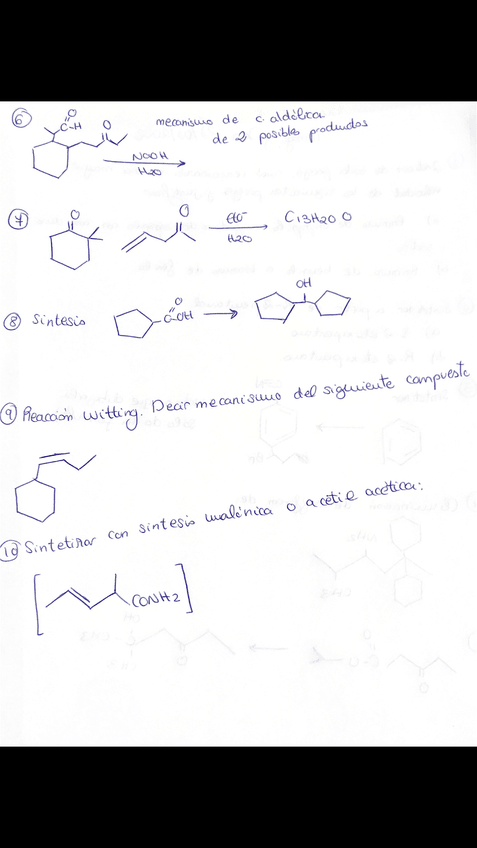 ⑥ O
C-H O
mecanismo de c. aldólica
de 2 posibles productos
NaOH
H₂O
⑦ O O
EtO⁻
H₂O
C13H20 O
⑧ Síntesis
O
C OH
OH
⑨ Reacción Witting. Decir mecanismo del siguiente compueste
⑩ Sintetizar con síntesis malónica o acétil acética:
CONH2